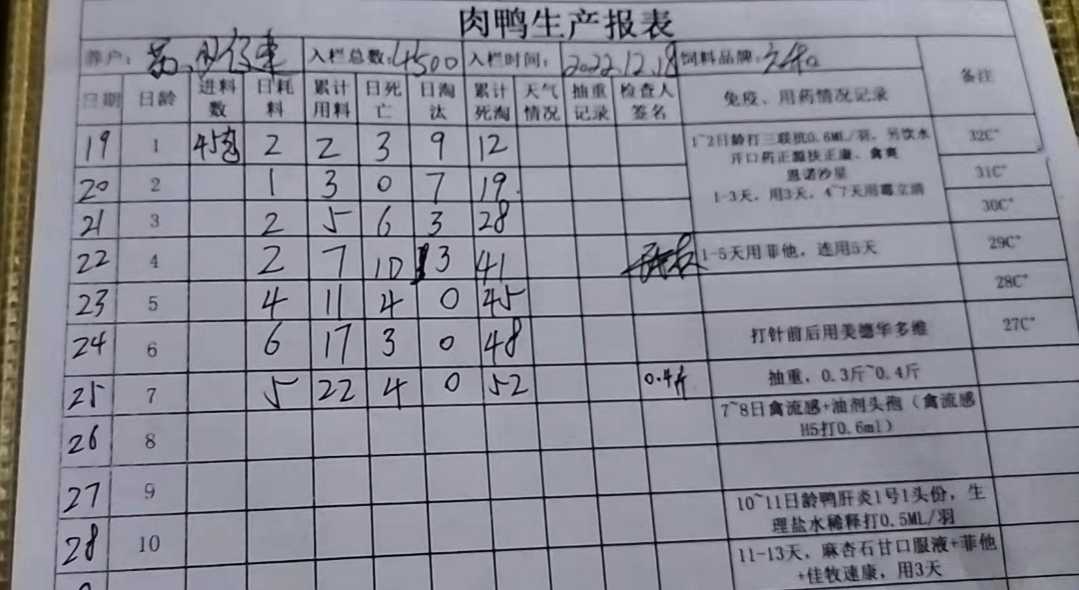 肉鸭生产报表
养户： 入栏总数：4500 入栏时间：2022.12.18 饲料品牌：
日期 日龄 进料数 日耗料 累计用料 日死亡 日淘汰 累计死淘 天气情况 抽重记录 检查人签名 免疫、用药情况记录 备注
19 1 45包 2 2 3 9 12 32C°
1~2日龄打三联抗0.6ML/羽，另饮水
开口药正源扶正康、禽爽
恩诺沙星
20 2 1 3 0 7 19. 31C°
1-3天，用3天，4~7天用霉立清
21 3 2 5 6 3 28 30C°
22 4 2 7 10 3 41 1-5天用菲他，连用5天 29C°
23 5 4 11 4 0 45 28C°
24 6 6 17 3 0 48 打针前后用美德华多维 27C°
25 7 5 22 4 0 52 0.4斤 抽重，0.3斤~0.4斤
26 8 7~8日禽流感+油剂头孢（禽流感
H5打0.6ml）
27 9
28 10 10~11日龄鸭肝炎1号1头份，生
理盐水稀释打0.5ML/羽
11-13天，麻杏石甘口服液+菲他
+佳牧速康，用3天